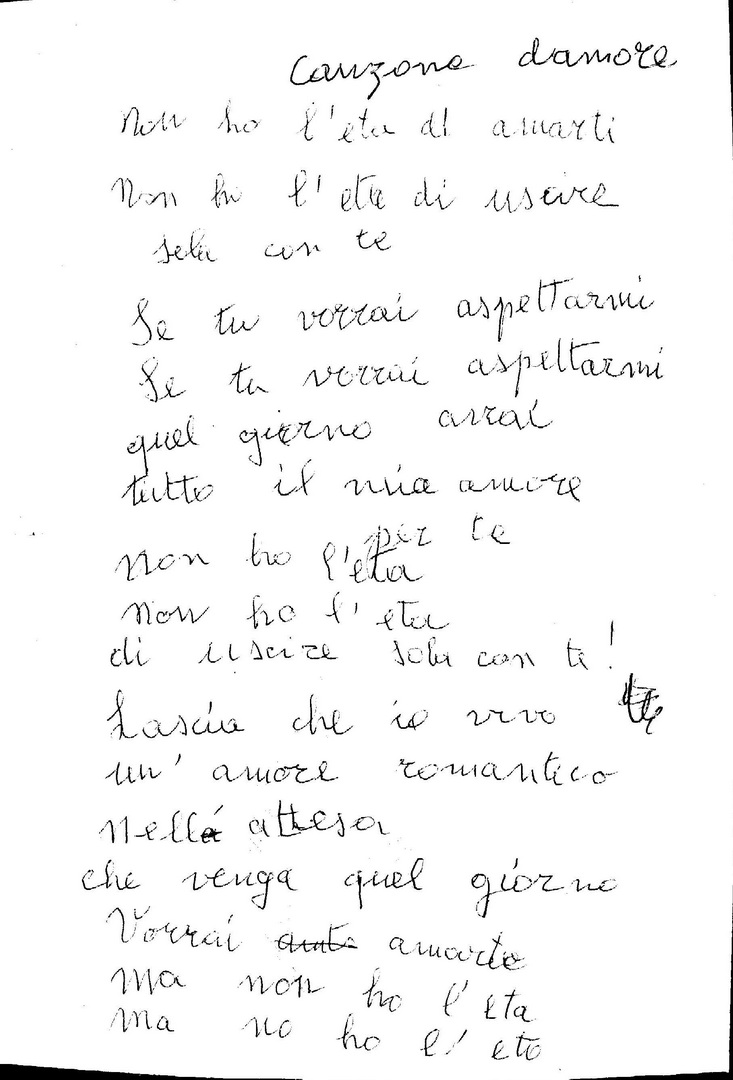 Canzone damore
Non ho l'eta di amarti
Non ho l'eta di uscire
sola con te
Se tu vorrai aspettarmi
Se tu vorrai aspettarmi
quel giorno avrai
tutto il mia amore
per te
non ho l'eta
Non ho l'eta
di uscire sola con te!
Lascia che io vivo te
un' amore romantico
Nell' attesa
che venga quel giorno
Vorrai amarte
ma non ho l'eta
ma no ho l'eta